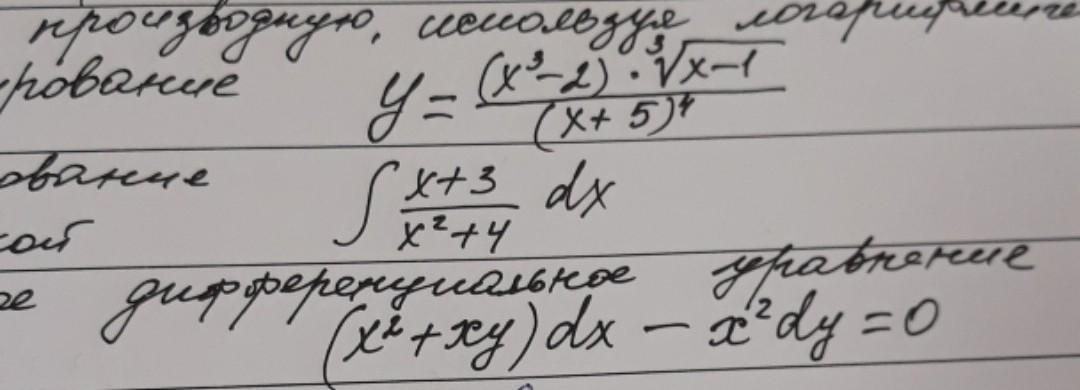 производную, используя логарифмиче
рование y = \frac{(x^3-2) \cdot \sqrt[3]{x-1}}{(x+5)^4}
ование ∫ \frac{x+3}{x^2+4} dx
кой
ое дифференциальное уравнение
(x^2+xy)dx - x^2dy = 0